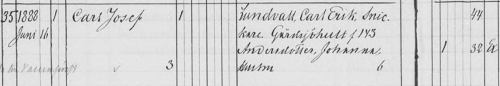 35 1888 1 Carl Josef 1 Lundvall, Carl Erik, Snic- 44
Juni 16 kare, Gärdsjöhult f 143
Andersdotter, Johanna, 1 32
3 hustru 6